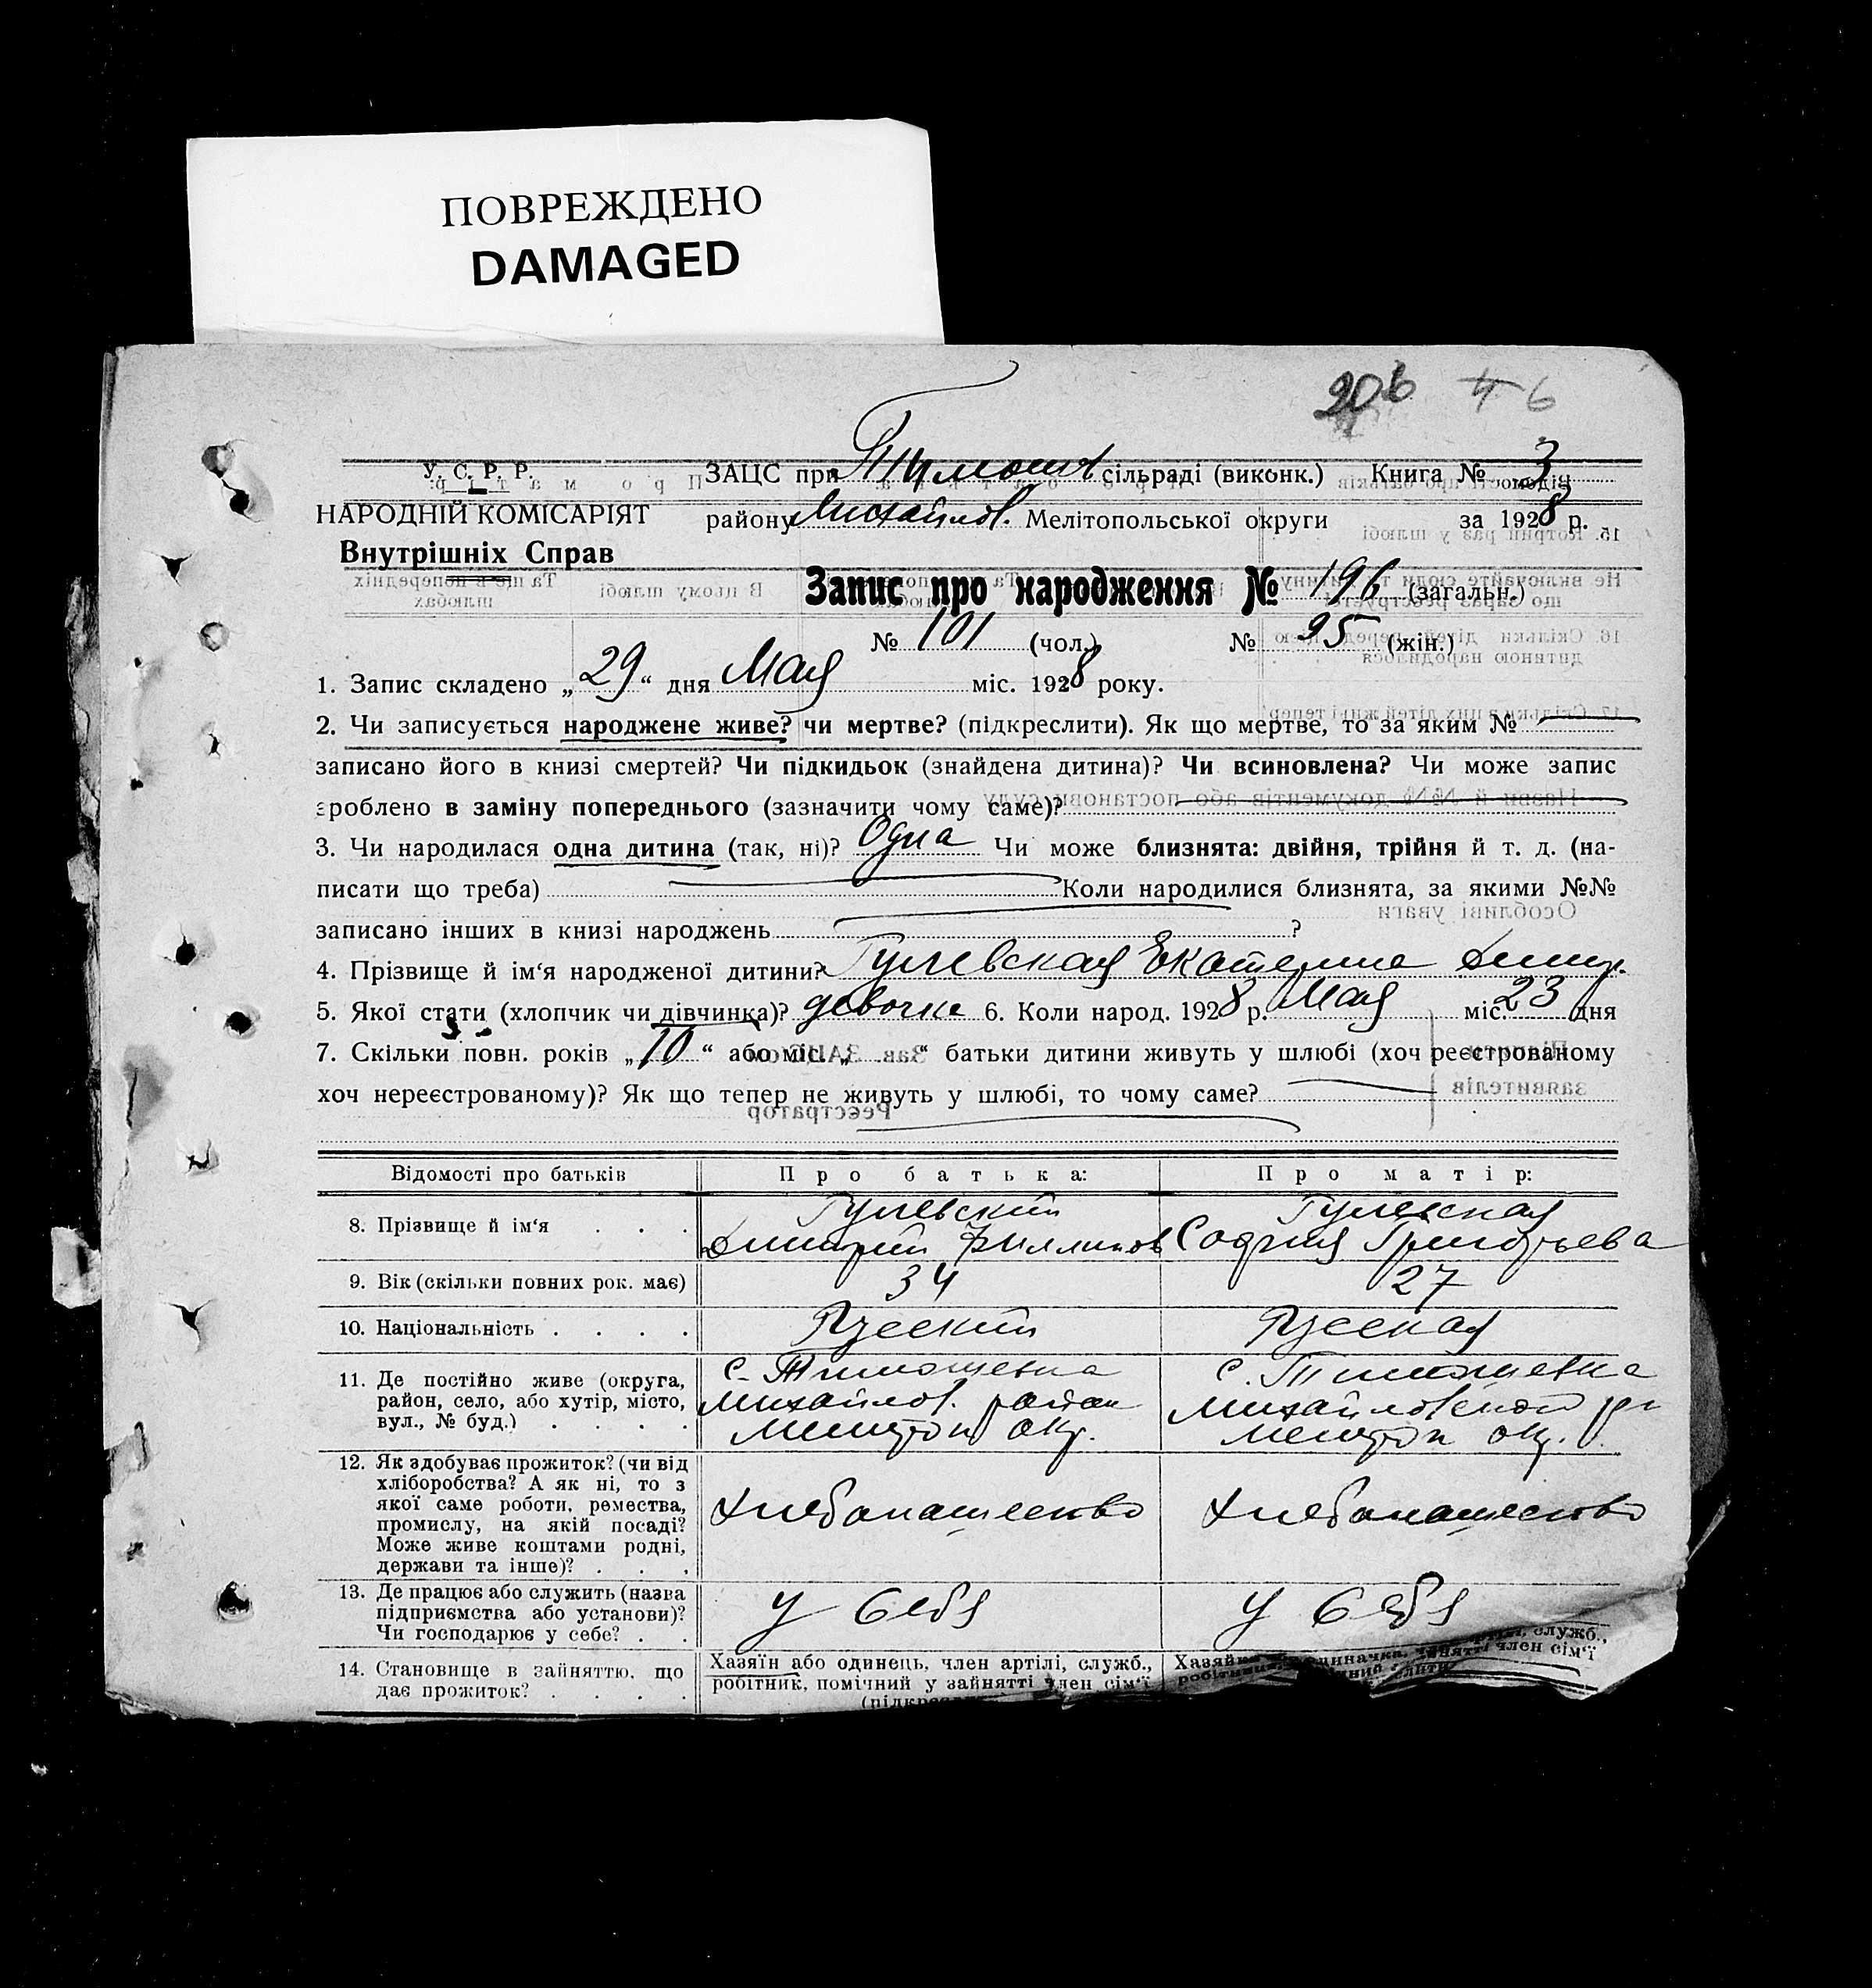 ПОВРЕЖДЕНО
DAMAGED
206 46
У. С. Р. Р. ЗАЦС при Тимош сільраді (виконк.) Книга № 3
НАРОДНІЙ КОМІСАРІЯТ району Михайлов. Мелітопольської округи за 1928 р.
Внутрішніх Справ
Запис про народження № 196 (загальн.)
№ 101 (чол.) № 95 (жін.)
1. Запис складено „29“ дня Мая міс. 1928 року.
2. Чи записується народжене живе? чи мертве? (підкреслити). Як що мертве, то за яким №
записано його в книзі смертей? Чи підкидьок (знайдена дитина)? Чи всиновлена? Чи може запис
зроблено в заміну попереднього (зазначити чому саме)?
3. Чи народилася одна дитина (так, ні)? Одна Чи може близнята: двійня, трійня й т. д. (на-
писати що треба) Коли народилися близнята, за якими №№
записано інших в книзі народжень ?
4. Прізвище й ім‘я народженої дитини? Гулевская Екатерина Димит.
5. Якої стати (хлопчик чи дівчинка)? девочка 6. Коли народ. 1928 р. Мая міс. 23 дня
7. Скільки повн. років „10“ або міс. „ “ батьки дитини живуть у шлюбі (хоч реєстрованому
хоч нереєстрованому)? Як що тепер не живуть у шлюбі, то чому саме?
Відомості про батьків Про батька: Про матір:
8. Прізвище й ім‘я . . . Гулевский Гулевская
Димитрий Филипов София Григорьева
9. Вік (скільки повних рок. має) 34 27
10. Національність . . . . Русский Русская
11. Де постійно живе (округа, с. Тимошевка с. Тимошевка
район, село, або хутір, місто, Михайлов. район Михайловской
вул., № буд.) . . . . Мелитоп окр. Мелитоп окр.
12. Як здобуває прожиток? (чи від
хліборобства? А як ні, то з
якої саме роботи, ремества, Хлебопашество Хлебопашество
промислу, на якій посаді?
Може живе коштами родні,
держави та інше)? . . .
13. Де працює або служить (назва
підприємства або установи)? у себя у себя
Чи господарює у себе? . .
14. Становище в зайняттю, що Хазяїн або одинець, член артілі, служб.,
дає прожиток? . . . . робітник, помічний у зайнятті член сім‘ї